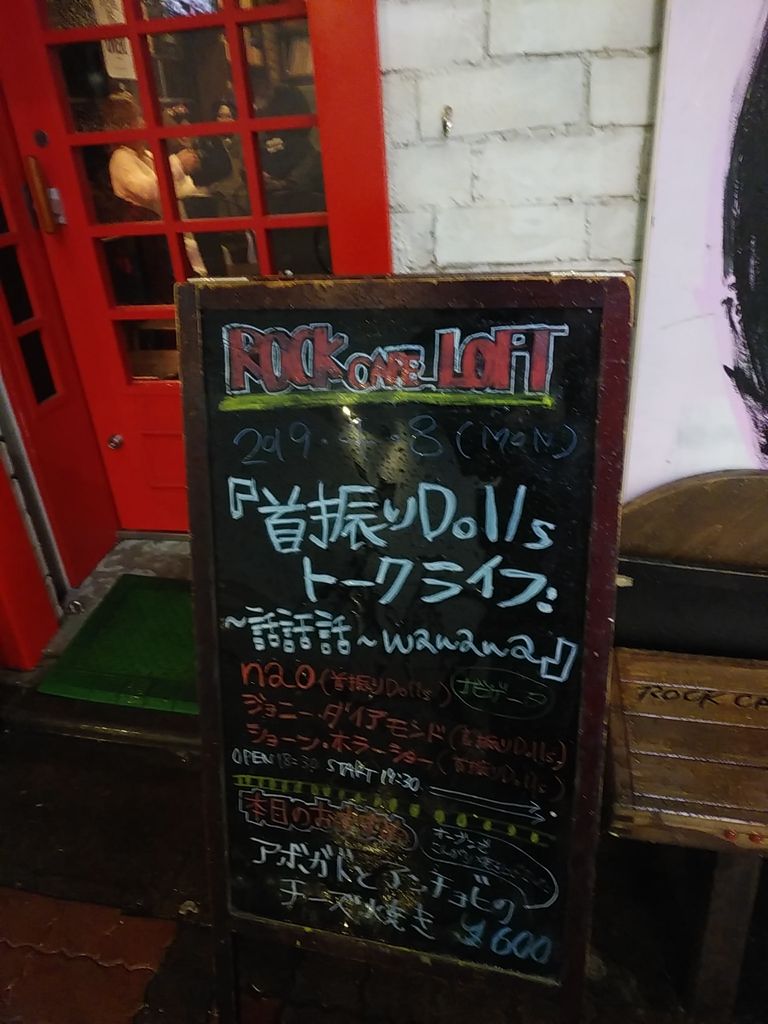 ROCK CAFE LOFT
2019・4・8(MON)
『首振りDolls
トークライブ:
~話話話~wanana』
nao(首振りDolls)
ナビゲータ
ジョニー・ダイアモンド(首振りDolls)
ショーン・ホラーショー(首振りDolls)
OPEN 18:30 START 19:30
本日のおすすめ
オーブンで
アボガドとアンチョビの
チーズ焼き ¥600
ROCK CA